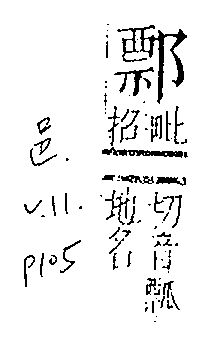 毗招
切音瓢
地名
邑.
V.11.
P105